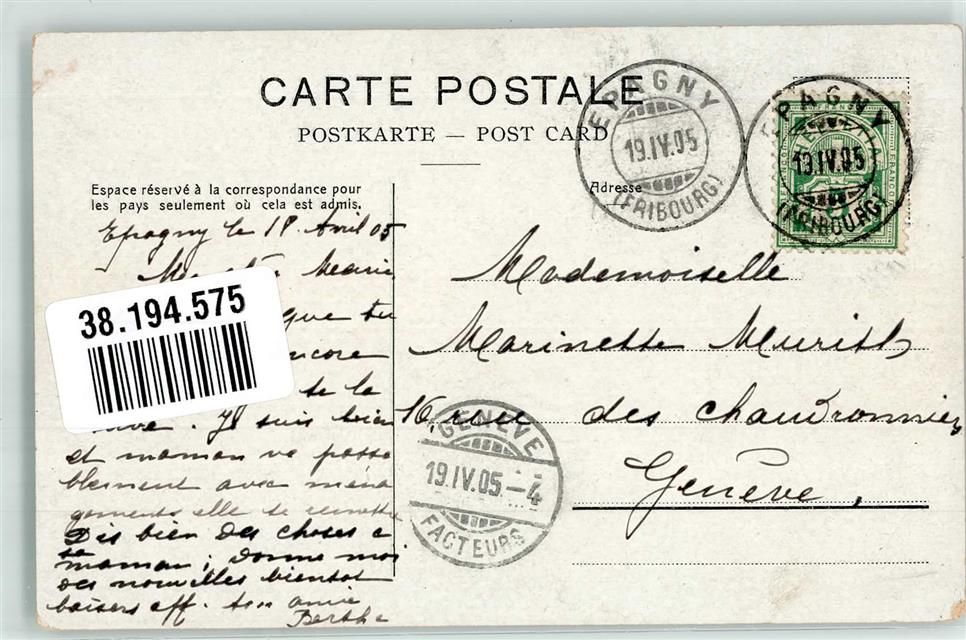 CARTE POSTALE
POSTKARTE — POST CARD
EPAGNY
19.IV.05
(FRIBOURG)
EPAGNY
19.IV.05
(FRIBOURG)
FRANCO
HELVETIA
Espace réservé à la correspondance pour
les pays seulement où cela est admis.
Adresse
Epagny le 18 Avril 05
38.194.575
que tu
encore
te la
. Je suis bien
et maman va passa
blement avec ména
gements elle se remette
Dis bien des choses a
ta
maman ; donne moi
des nouvelles bientot
baisers aff. ton amie
Berthe
Mademoiselle
Marinette Murith
16, rue des Chaudronniers
Genève,
GENÈVE
19.IV.05.–4
FACTEURS